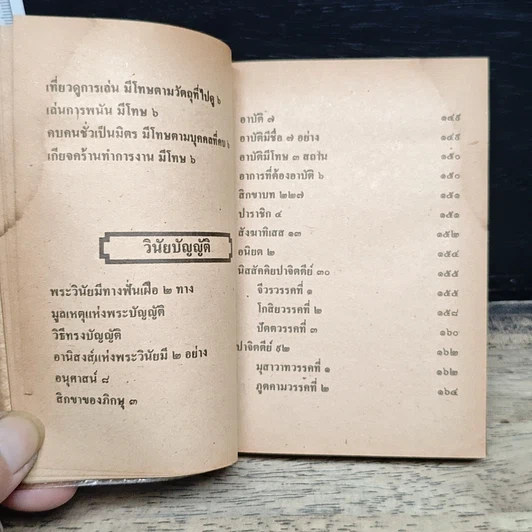 เที่ยวดูการเล่น มีโทษตามวัตถุที่ไปดู ๖
เล่นการพนัน มีโทษ ๖
คบคนชั่วเป็นมิตร มีโทษตามบุคคลที่คบ ๖
เกียจคร้านทำการงาน มีโทษ ๖
วินัยบัญญัติ
พระวินัยมีทางฟั่นเฝือ ๒ ทาง
มูลเหตุแห่งพระบัญญัติ
วิธีทรงบัญญัติ
อานิสงส์แห่งพระวินัยมี ๒ อย่าง
อนุศาสน์ ๘
สิกขาของภิกษุ ๓
อาบัติ ๗ ๑๔๙
อาบัติมีชื่อ ๗ อย่าง ๑๔๙
อาบัติมีโทษ ๓ สถาน ๑๕๐
อาการที่ต้องอาบัติ ๖ ๑๕๐
สิกขาบท ๒๒๗ ๑๕๑
ปาราชิก ๔ ๑๕๑
สังฆาทิเสส ๑๓ ๑๕๒
อนิยต ๒ ๑๕๔
นิสสัคคิยปาจิตตีย์ ๓๐ ๑๕๕
จีวรวรรคที่ ๑ ๑๕๕
โกสิยวรรคที่ ๒ ๑๕๘
ปัตตวรรคที่ ๓ ๑๖๐
ปาจิตตีย์ ๙๒ ๑๖๒
มุสาวาทวรรคที่ ๑ ๑๖๒
ภูตคามวรรคที่ ๒ ๑๖๔